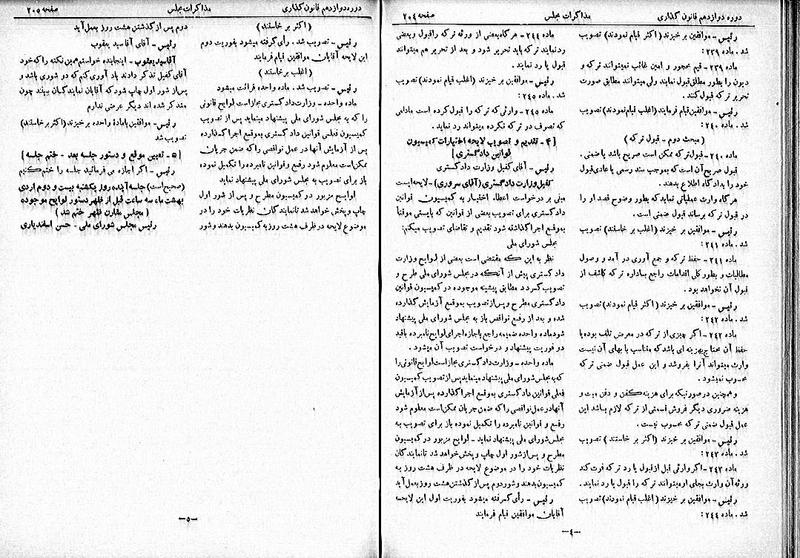 دوره دوازدهم قانون گذاری
مذاکرات مجلس
صفحه ۲۰۴
رئیس - موافقین بر خیزند (اکثر قیام نمودند) تصویب
شد . ماده ۲۳۹:
ماده ۲۳۹ - قیم محجور و امین غائب نمیتوانند ترکه و
دیون را بطور مطلق قبول نمایند ولی میتوانند مطابق صورت
تحریر ترکه قبول کنند.
رئیس - موافقین قیام فرمایند (اغلب قیام نمودند) تصویب
شد . ماده ۲۴۰:
(مبحث دوم - قبول ترکه)
ماده ۲۴۰ - قبول ترکه ممکن است صریح باشد یا ضمنی.
قبول صریح آن است که بموجب سند رسمی یا عادی قبول
خود را بدادگاه اطلاع بدهند.
هر گاه وارث عملیاتی نماید که بطور وضوح قصد او را
در قبول ترکه برساند قبول ضمنی است.
رئیس - موافقین بر خیزند (اغلب بر خاستند) تصویب
شد . ماده ۲۴۱:
ماده ۲۴۱ - حفظ ترکه و جمع آوری در آمد و وصول
مطالبات و بطور کلی اقدامات راجع باداره ترکه کاشف از
قبول آن نخواهد بود.
رئیس - موافقین بر خیزند (اکثر قیام نمودند) تصویب
شد . ماده ۲۴۲:
ماده ۲۴۲ - اگر چیزی از ترکه در معرض تلف بوده یا
حفظ آن محتاج بهزینه ای باشد که متناسب با بهای آن نیست
وارث میتواند آنرا بفروشد و این عمل قبول ضمنی ترکه
محسوب نمیشود.
و همچنین در صورتیکه برای هزینه کفن و دفن میت و
هزینه ضروری دیگر فروش قسمتی از ترکه لازم باشد این
عمل قبول ضمنی ترکه محسوب نیست.
رئیس - موافقین بر خیزند (اکثر بر خاستند) تصویب
شد . ماده ۲۴۳:
ماده ۲۴۳ - اگر وارثی قبل از قبول یا رد ترکه فوت کند
ورثه آن وارث بجای او میتوانند ترکه را قبول یا رد نمایند.
رئیس - موافقین بر خیزند (اغلب قیام نمودند) تصویب
شد . ماده ۲۴۴:
ماده ۲۴۴ - هر گاه بعضی از ورثه ترکه را قبول و بعضی
رد نمایند ترکه باید تحریر شود و بعد از تحریر هم میتوانند
قبول یا رد نمایند.
رئیس - موافقین بر خیزند (اغلب قیام نمودند) تصویب
شد . ماده ۲۴۵:
ماده ۲۴۵ - وارثی که ترکه را قبول کرده است مادامی
که تصرف در ترکه نکرده میتواند رد نماید.
[۴ - تقدیم و تصویب لایحه اختیارات کمیسیون
قوانین دادگستری]
رئیس - آقای کفیل وزارت دادگستری
کفیل وزارت دادگستری (آقای سروری) - لایحه ایست
مبنی بر درخواست اعطاء اختیار به کمیسیون قوانین
دادگستری برای تصویب بعضی از قوانین که بایستی موقتاً
بموقع اجرا گذاشته شود تقدیم و تقاضای تصویب میکنم:
مجلس شورای ملی
نظر به این که مقتضی است بعضی از لوایح وزارت
دادگستری پیش از آنکه در مجلس شورای ملی طرح و
تصویب گردد مطابق پیشینه موجوده در کمیسیون قوانین
دادگستری مطرح و پس از تصویب بموقع آزمایش گذارده
شده و بعد از رفع نواقص باز به مجلس شورای ملی پیشنهاد
شود ماده واحده ضمیمه راجع باجازه اجرای لوایح نامبرده باقید
دو فوریت پیشنهاد و درخواست تصویب آن میشود.
ماده واحده - وزارت دادگستری مجاز است لوایح قانونی را
که به مجلس شورای ملی پیشنهاد مینماید پس از تصویب کمیسیون
فعلی قوانین دادگستری بموقع اجرا گذارده و پس از آزمایش
آنها در عمل نواقصی را که ضمن جریان ممکن است معلوم شود
رفع و قوانین نامبرده را تکمیل نموده باز برای تصویب به
مجلس شورای ملی پیشنهاد نماید - لوایح مزبور در کمیسیون
مطرح و پس از شور اول چاپ و پخش خواهد شد تا نمایندگان
نظریات خود را در موضوع لایحه در ظرف هشت روز به
کمیسیون بدهند و شور دوم پس از گذشتن هشت روز بعمل آید
رئیس - رأی گرفته میشود بفوریت اول این لایحه
آقایان موافقین قیام فرمایند
-۴-
دوره دوازدهم قانون گذاری
مذاکرات مجلس
صفحه ۲۰۵
(اکثر بر خاستند)
رئیس - تصویب شد . رأی گرفته میشود بفوریت دوم
این لایحه آقایان موافقین قیام فرمایند
(اغلب بر خاستند)
رئیس - تصویب شد. ماده واحده قرائت میشود
ماده واحده - وزارت دادگستری مجاز است لوایح قانونی
را که به مجلس شورای ملی پیشنهاد مینماید پس از تصویب
کمیسیون فعلی قوانین دادگستری بموقع اجرا گذارده
پس از آزمایش آنها در عمل نواقصی را که ضمن جریان
ممکن است معلوم شود رفع و قوانین نامبرده را تکمیل نموده
باز برای تصویب به مجلس شورای ملی پیشنهاد نماید
لوایح مزبور در کمیسیون مطرح و پس از شور اول
چاپ و پخش خواهد شد تا نمایندگان نظریات خود را در
موضوع لایحه در ظرف هشت روز به کمیسیون بدهند و شور
دوم پس از گذشتن هشت روز بعمل آید
رئیس - آقای آقا سید یعقوب
آقا سید یعقوب - اینجا بنده خواستم همین نکته را که خود
آقای کفیل تذکر دادند یاد آوری کنم که دو شوری باشد و
پس از شور اول چاپ شود که آقایان نمایندگان ببینند چون
متذکر شده اند دیگر عرضی ندارم
رئیس - موافقین با ماده واحده بر خیزند (اکثر بر خاستند)
تصویب شد
[۵ - تعیین موقع و دستور جلسه بعد - ختم جلسه]
رئیس - اگر اجازه می فرمائید جلسه را ختم کنیم
(صحیح است) جلسه آینده روز یکشنبه بیست و دوم اردی
بهشت ماه سه ساعت قبل از ظهر دستور لوایح موجوده
(مجلس مقارن ظهر ختم شد)
رئیس مجلس شورای ملی - حسن اسفندیاری
-۵-